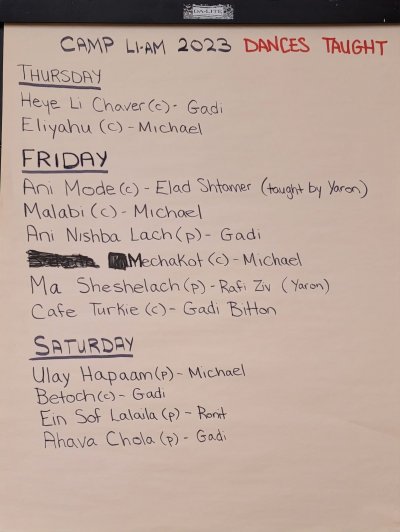 DA-LITE
CAMP LI-AM 2023 DANCES TAUGHT
THURSDAY
Heye Li Chaver (c) - Gadi
Eliyahu (c) - Michael
FRIDAY
Ani Mode (c) - Elad Shtamer (taught by Yaron)
Malabi (c) - Michael
Ani Nishba Lach (p) - Gadi
Mechakot (c) - Michael
Ma Sheshelach (p) - Rafi Ziv (Yaron)
Cafe Turkie (c) - Gadi Bitton
SATURDAY
Ulay Hapaam (p) - Michael
Betoch (c) - Gadi
Ein Sof Lalaila (p) - Ronit
Ahava Chola (p) - Gadi